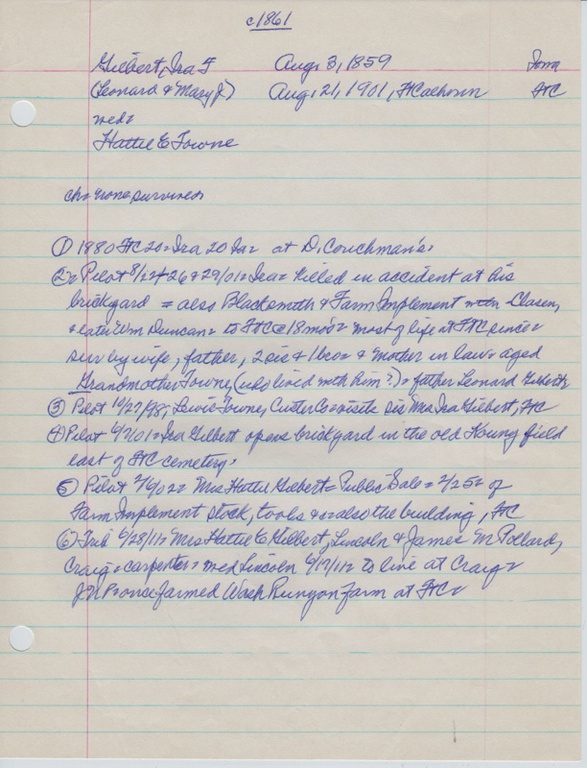 c1861
Gilbert, Ira F Aug. 3, 1859 Iowa
(Leonard & Mary J.) Aug. 21, 1901, FtCalhoun FtC
wed=
Hattie E Towne
ch= none survived
① 1880 FtC 20= Ira 20 Ia= at D. Couchman's.
② Pilot 8/22+26&29/01= Ira= killed in accident at his
brickyard = also Blacksmith & Farm Implement with Clasen,
& later Wm Duncan= to FtC @ 18 mos= most of life at FtC since=
surv by wife, father, 2 sis & 1 bro= & mother in law= aged
Grandmother Towne (who lived with him?)= father Leonard Gilbert
③ Pilot 10/27/98, Lewis Towne, Custer Co visits sis Mrs Ira Gilbert, FtC
④ Pilot 6/7/01= Ira Gilbert opens brickyard in the old Young field
east of FtC cemetery.
⑤ Pilot 2/6/02= Mrs Hattie Gilbert= Public Sale= 2/25= of
Farm Implement stock, tools & also the building, FtC
⑥ Trib 6/28/11= Mrs Hattie E Gilbert, Lincoln & James M Pollard,
Craig= carpenter= wed Lincoln 6/17/11= to live at Craig=
once farmed Wash Runyon farm at FtC=